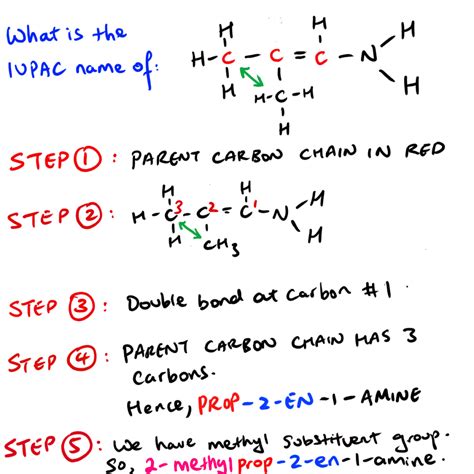 What is the
IUPAC name of:
H H H
H-C-C=C-N
H H-C-H H
H
STEP 1: PARENT CARBON CHAIN IN RED
STEP 2:
H H H
H-C3-C2=C1-N
H CH3 H
STEP 3: Double bond at carbon #1.
STEP 4: PARENT CARBON CHAIN HAS 3
Carbons.
Hence, PROP-2-EN-1-AMINE
STEP 5: We have methyl substituent group.
So, 2-methylprop-2-en-1-amine.